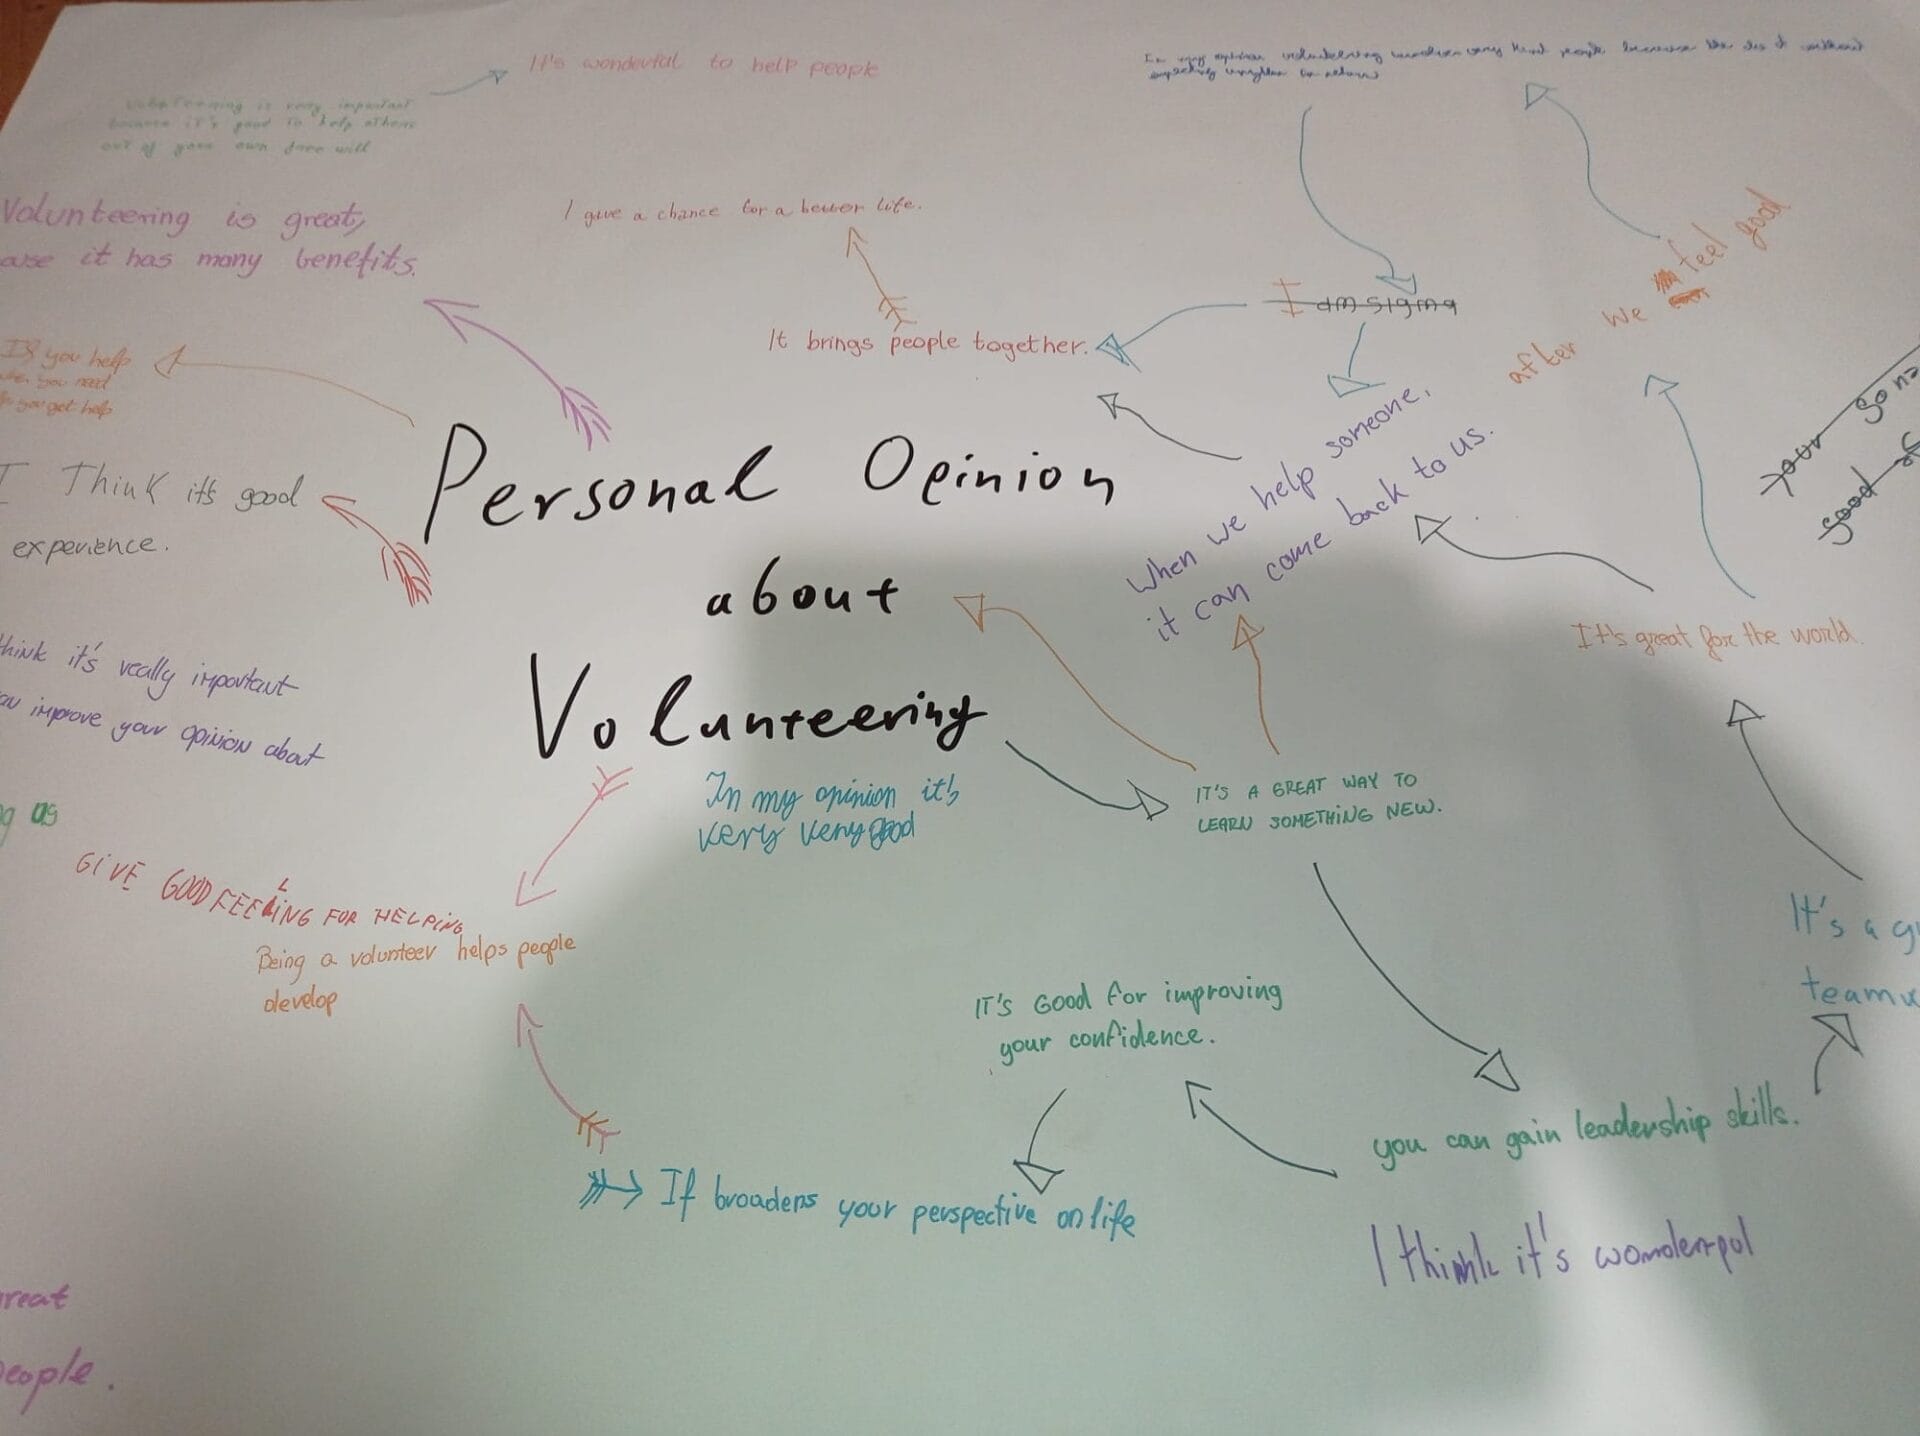 It's wonderful to help people
In my opinion volunteering very kind people because without
expecting in return
Volunteering is very important
because it's good to help others
out of your own free will
Volunteering is great,
ause it has many benefits.
I give a chance for a better life.
It brings people together.
I am sigma
after we feel good
If you help
when you need
you get help
I Think it's good
experience.
Personal Opinion
about
Volunteering
When we help someone,
it can come back to us.
your
good
It's great for the world.
think it's really important
improve your opinion about
In my opinion it's
very very good
IT'S A GREAT WAY TO
LEARN SOMETHING NEW.
g as
GIVE GOOD FEELING FOR HELPING
Being a volunteer helps people
develop
It's a g
teamw
IT'S GOOD for improving
your confidence.
you can gain leadership skills.
If broadens your perspective on life
I think it's wonderful
reat
people.